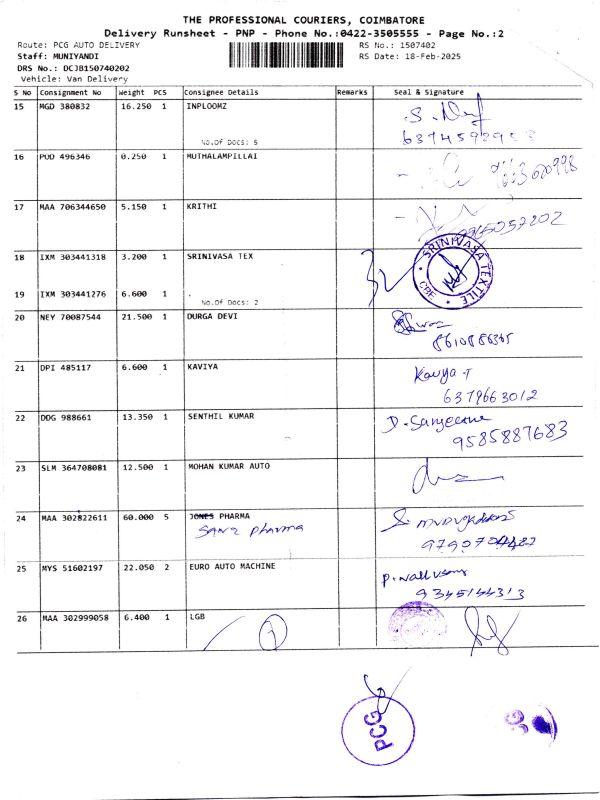 THE PROFESSIONAL COURIERS, COIMBATORE
Delivery Runsheet - PNP - Phone No.:0422-3505555 - Page No.:2
Route: PCG AUTO DELIVERY RS No.: 1507402
Staff: MUNIYANDI RS Date: 18-Feb-2025
DRS No.: DCJB150740202
Vehicle: Van Delivery
S No Consignment No Weight PCS Consignee Details Remarks Seal & Signature
15 MGD 380832 16.250 1 INPLOOMZ
No.Of Docs: 5
16 PUD 496346 0.250 1 MUTHALAMPILLAI
17 MAA 706344650 5.150 1 KRITHI
18 IXM 303441318 3.200 1 SRINIVASA TEX
SRINIVASA TEXTILE CBE
19 IXM 303441276 6.600 1 .
No.Of Docs: 2
20 NEY 70087544 21.500 1 DURGA DEVI
21 DPI 485117 6.600 1 KAVIYA
Kavya T
6379663012
22 DDG 988661 13.350 1 SENTHIL KUMAR
9585887683
23 SLM 364708081 12.500 1 MOHAN KUMAR AUTO
24 MAA 302822611 60.000 5 JONES PHARMA
Sanz pharma
25 MYS 51602197 22.050 2 EURO AUTO MACHINE
9345144313
26 MAA 302999058 6.400 1 LGB
PCG